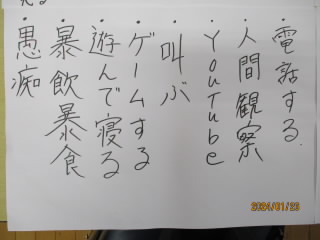 ・電話する
・人間観察
・Youtube
・叫ぶ
・ゲームする
・遊んで寝る
・暴飲暴食
・愚痴
2024/01/23